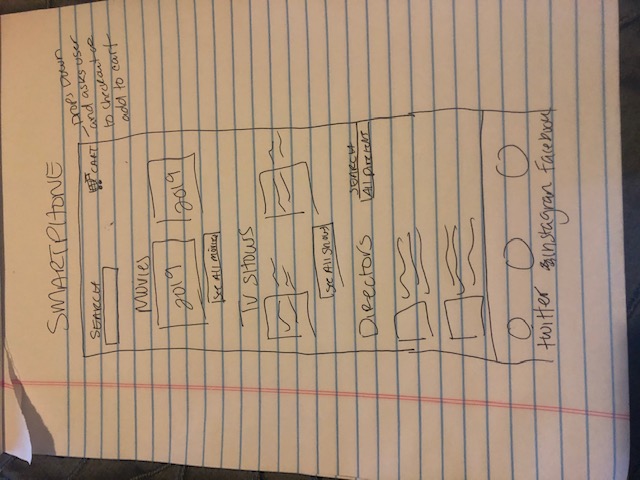 SMARTPHONE
SEARCH
CART
Drops Down
and asks user
to checkout or
add to cart
Movies
2019 2019
See All Movies
TV SHOWS
See All Shows
Directors
SEARCH
All Director
twitter instagran Facebook